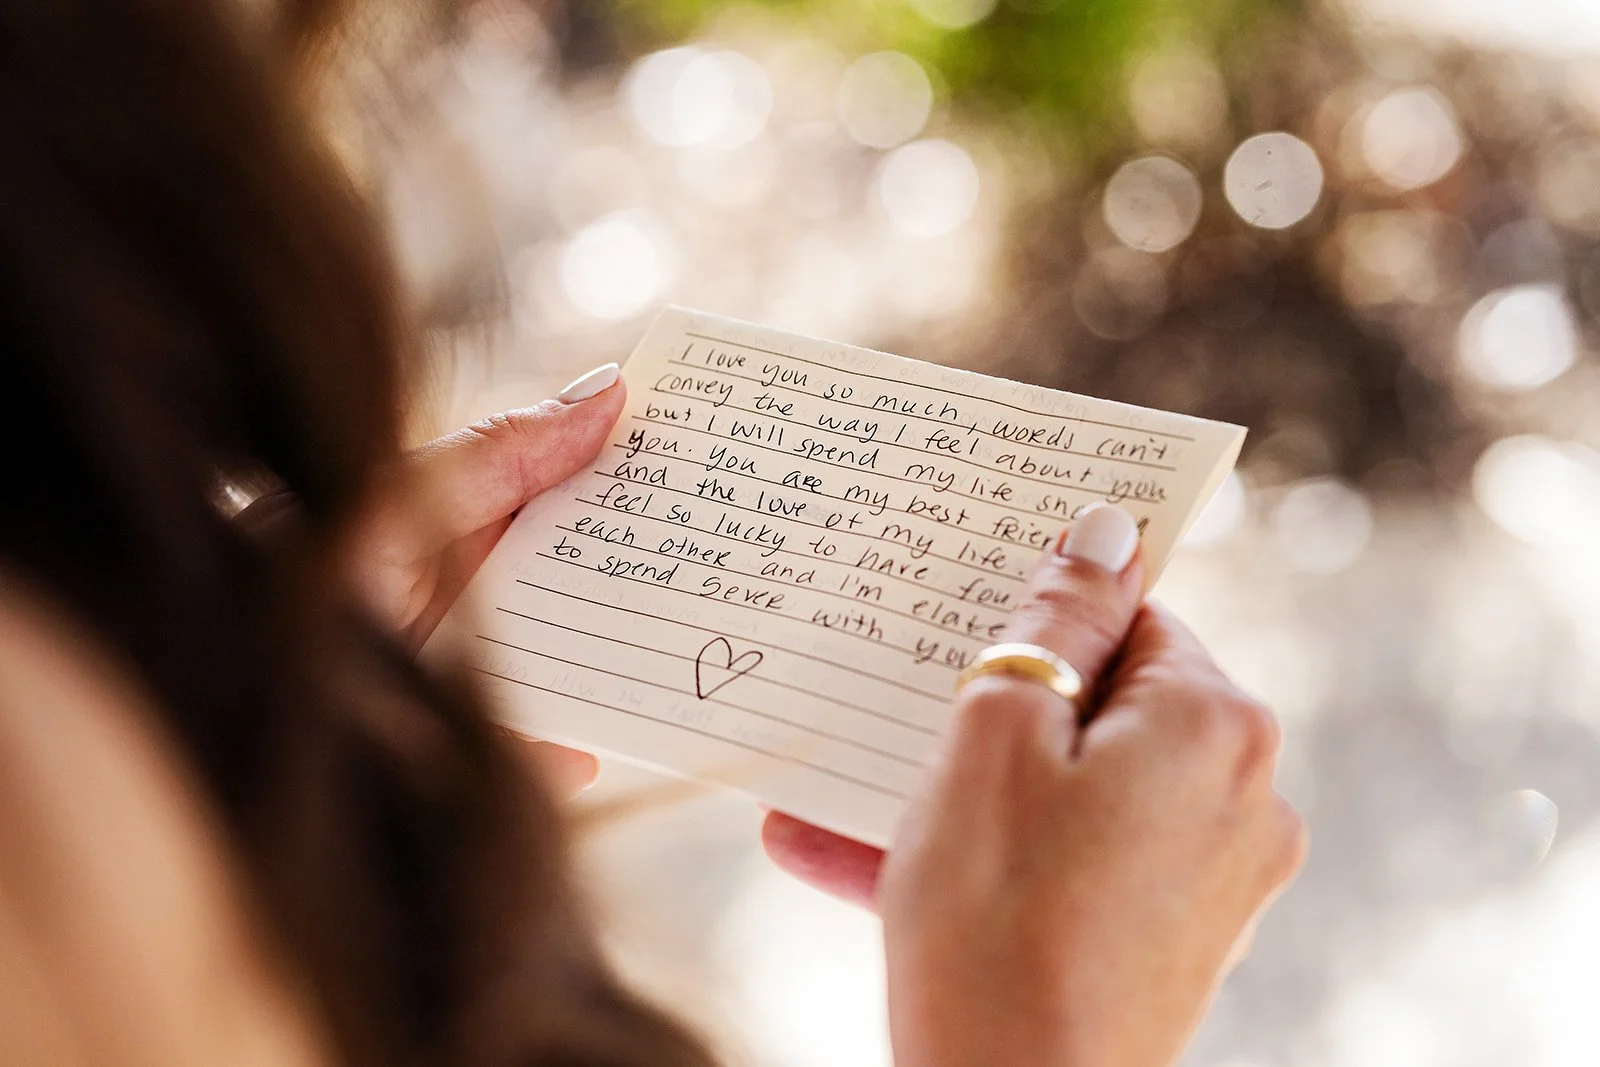 I love you so much, words can't
convey the way I feel about you
but I will spend my life
you. You are my best
and the love of my life.
feel so lucky to have
each other and I'm
to spend 5ever with